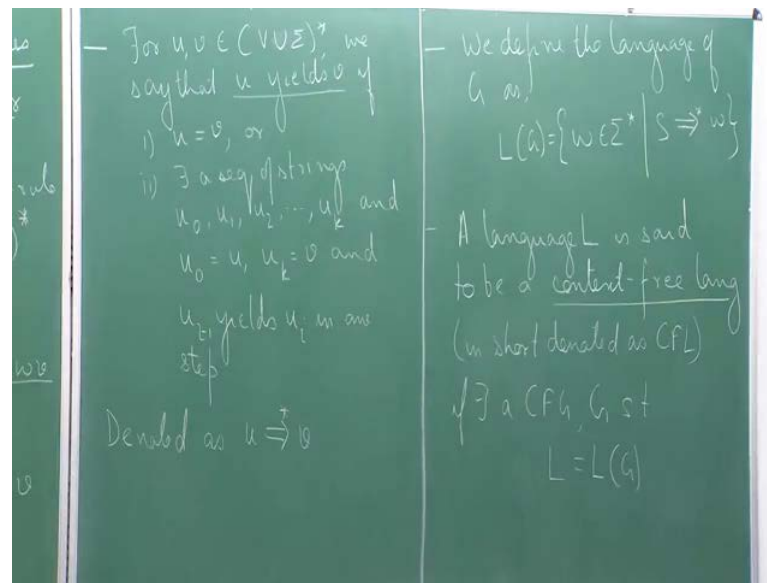 rule
)*
wv
v
— For u, v ∈ (V ∪ Σ)*, we
say that u yields v if
i) u = v, or
ii) ∃ a seq of strings
u₀, u₁, u₂, ..., uₖ and
u₀ = u, uₖ = v and
uᵢ₋₁ yields uᵢ in one
step
Denoted as u ⇒* v
— We define the language of
G as,
L(G) = {w ∈ Σ* | S ⇒* w}
- A language L is said
to be a context-free lang
(in short denoted as CFL)
if ∃ a CFG, G st
L = L(G)